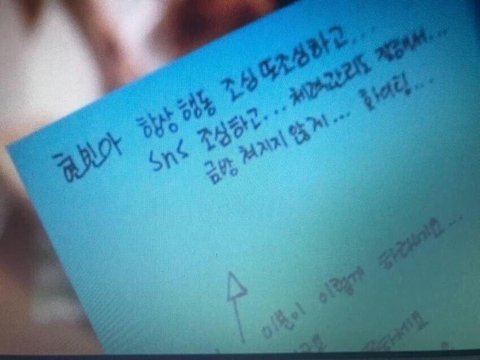 현빈아 항상 행동 조심 또조심하고...
sns 조심하고... 체력관리도 잘해서...
금방 쳐지지 않게... 화이팅...
이분이 이렇게